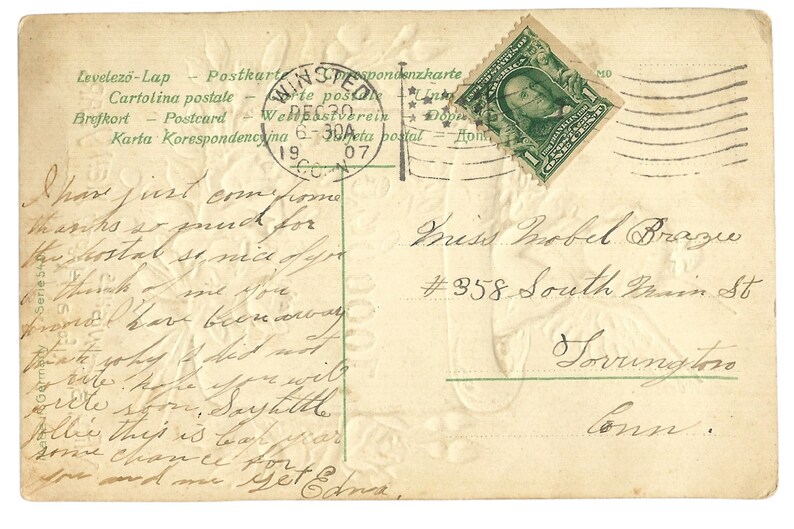 Levelező-Lap – Postkarte – Correspondenzkarte
Cartolina postale – Carte postale –
Brefkort – Postcard – Weltpostverein –
Karta Korespondencyjna – Tarjeta postal –
WINSTED
DEC 30
6-30A
1907
CONN
UNITED STATES OF AMERICA
1
ONE CENT
I have just come home
thanks so much for
the postal so nice of you
to think of me you
know I have been away
thats why I did not
rite hope you will
rite soon. Say little
this is leap year
some chance for
you and me yet Edna.
Miss Mabel Brazie
#358 South Main St
Torrington
Conn.
Germany Serie 54